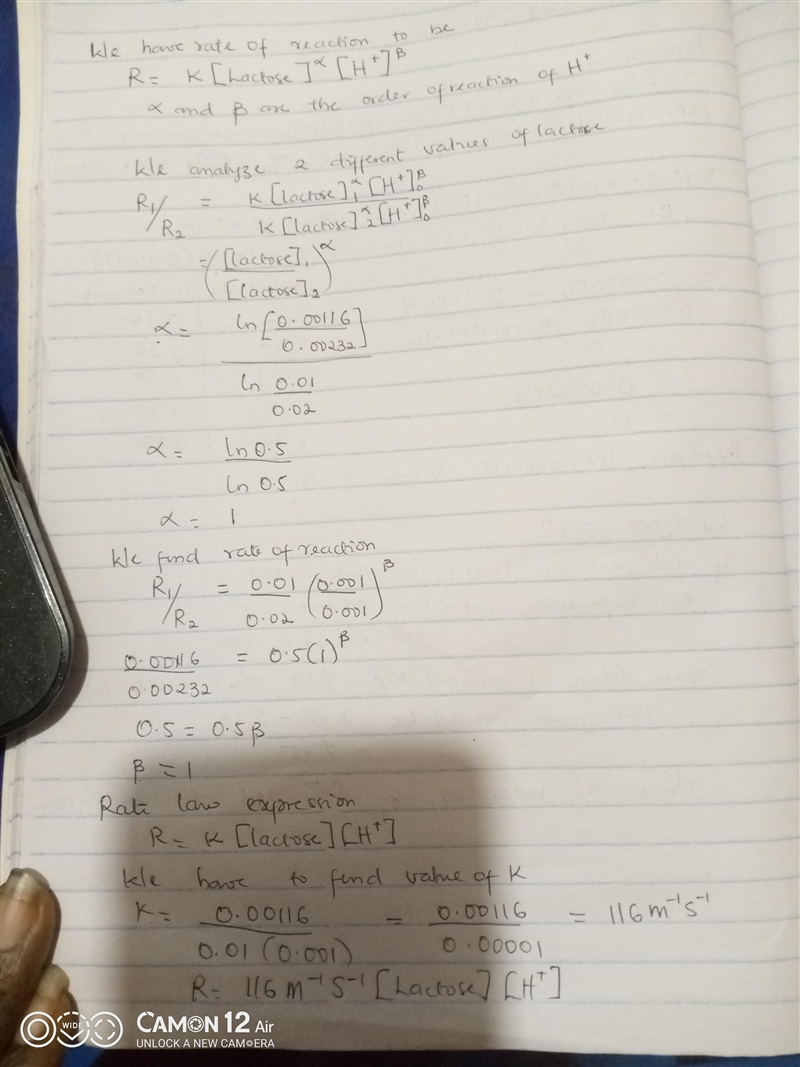 We have rate of reaction to be
R = K [Lactose]^α [H⁺]^β
α and β are the order of reaction of H⁺
We analyze 2 different values of lactose
R₁/R₂ = K [lactose]₁^α [H⁺]₀^β / K [lactose]₂^α [H⁺]₀^β
= ([lactose]₁ / [lactose]₂)^α
α = ln [0.00116 / 0.00232] / ln 0.01 / 0.02
α = ln 0.5 / ln 0.5
α = 1
We find rate of reaction
R₁/R₂ = 0.01 / 0.02 (0.001 / 0.001)^β
0.00116 / 0.00232 = 0.5(1)^β
0.5 = 0.5β
β = 1
Rate law expression
R = K [lactose] [H⁺]
We have to find value of K
K = 0.00116 / 0.01 (0.001) = 0.00116 / 0.00001 = 116 m⁻¹s⁻¹
R = 116 m⁻¹ S⁻¹ [Lactose] [H⁺]
WIDE
CAMON 12 Air
UNLOCK A NEW CAMERA